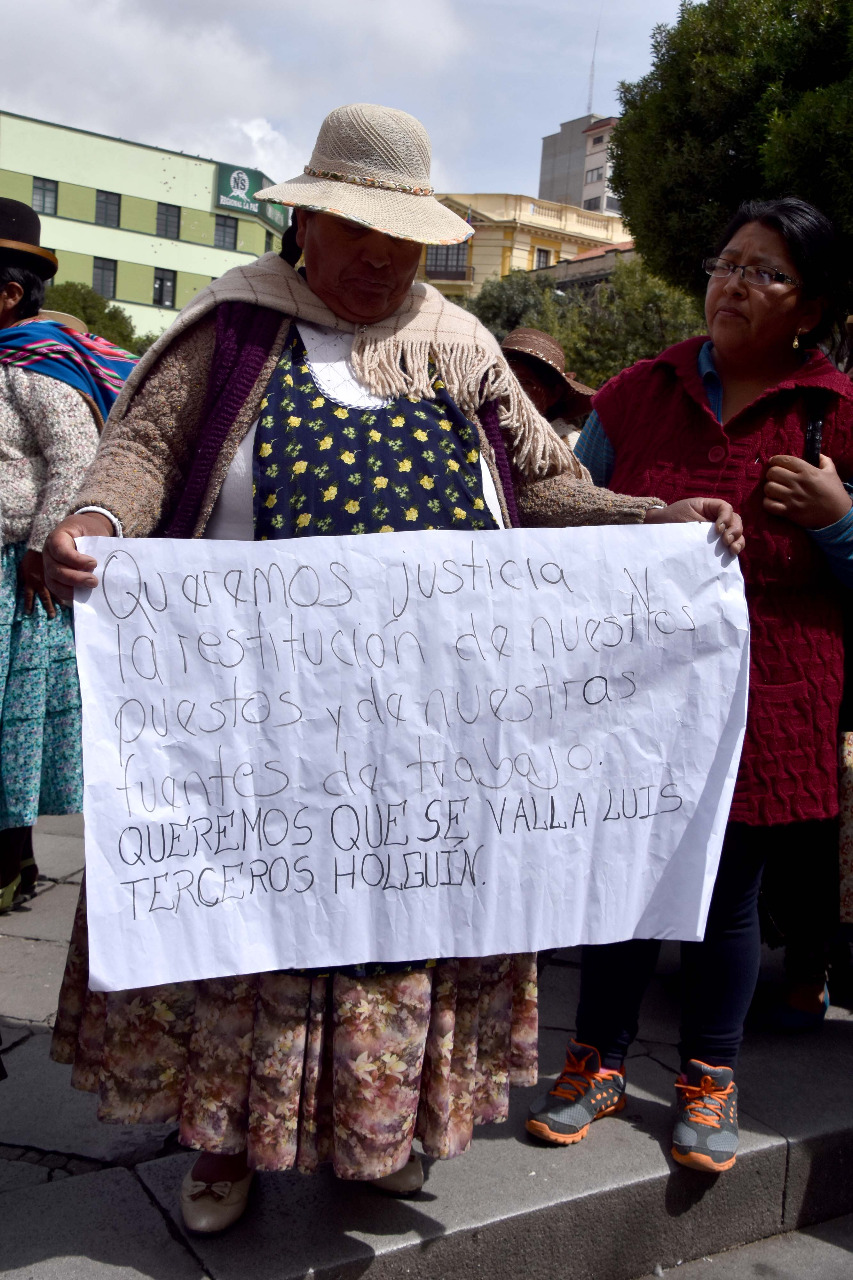 CNS
REGIONAL LA PAZ
Queremos justicia y
la restitución de nuestros
puestos y de nuestras
fuentes de trabajo.
QUEREMOS QUE SE VALLA LUIS
TERCEROS HOLGUÍN.